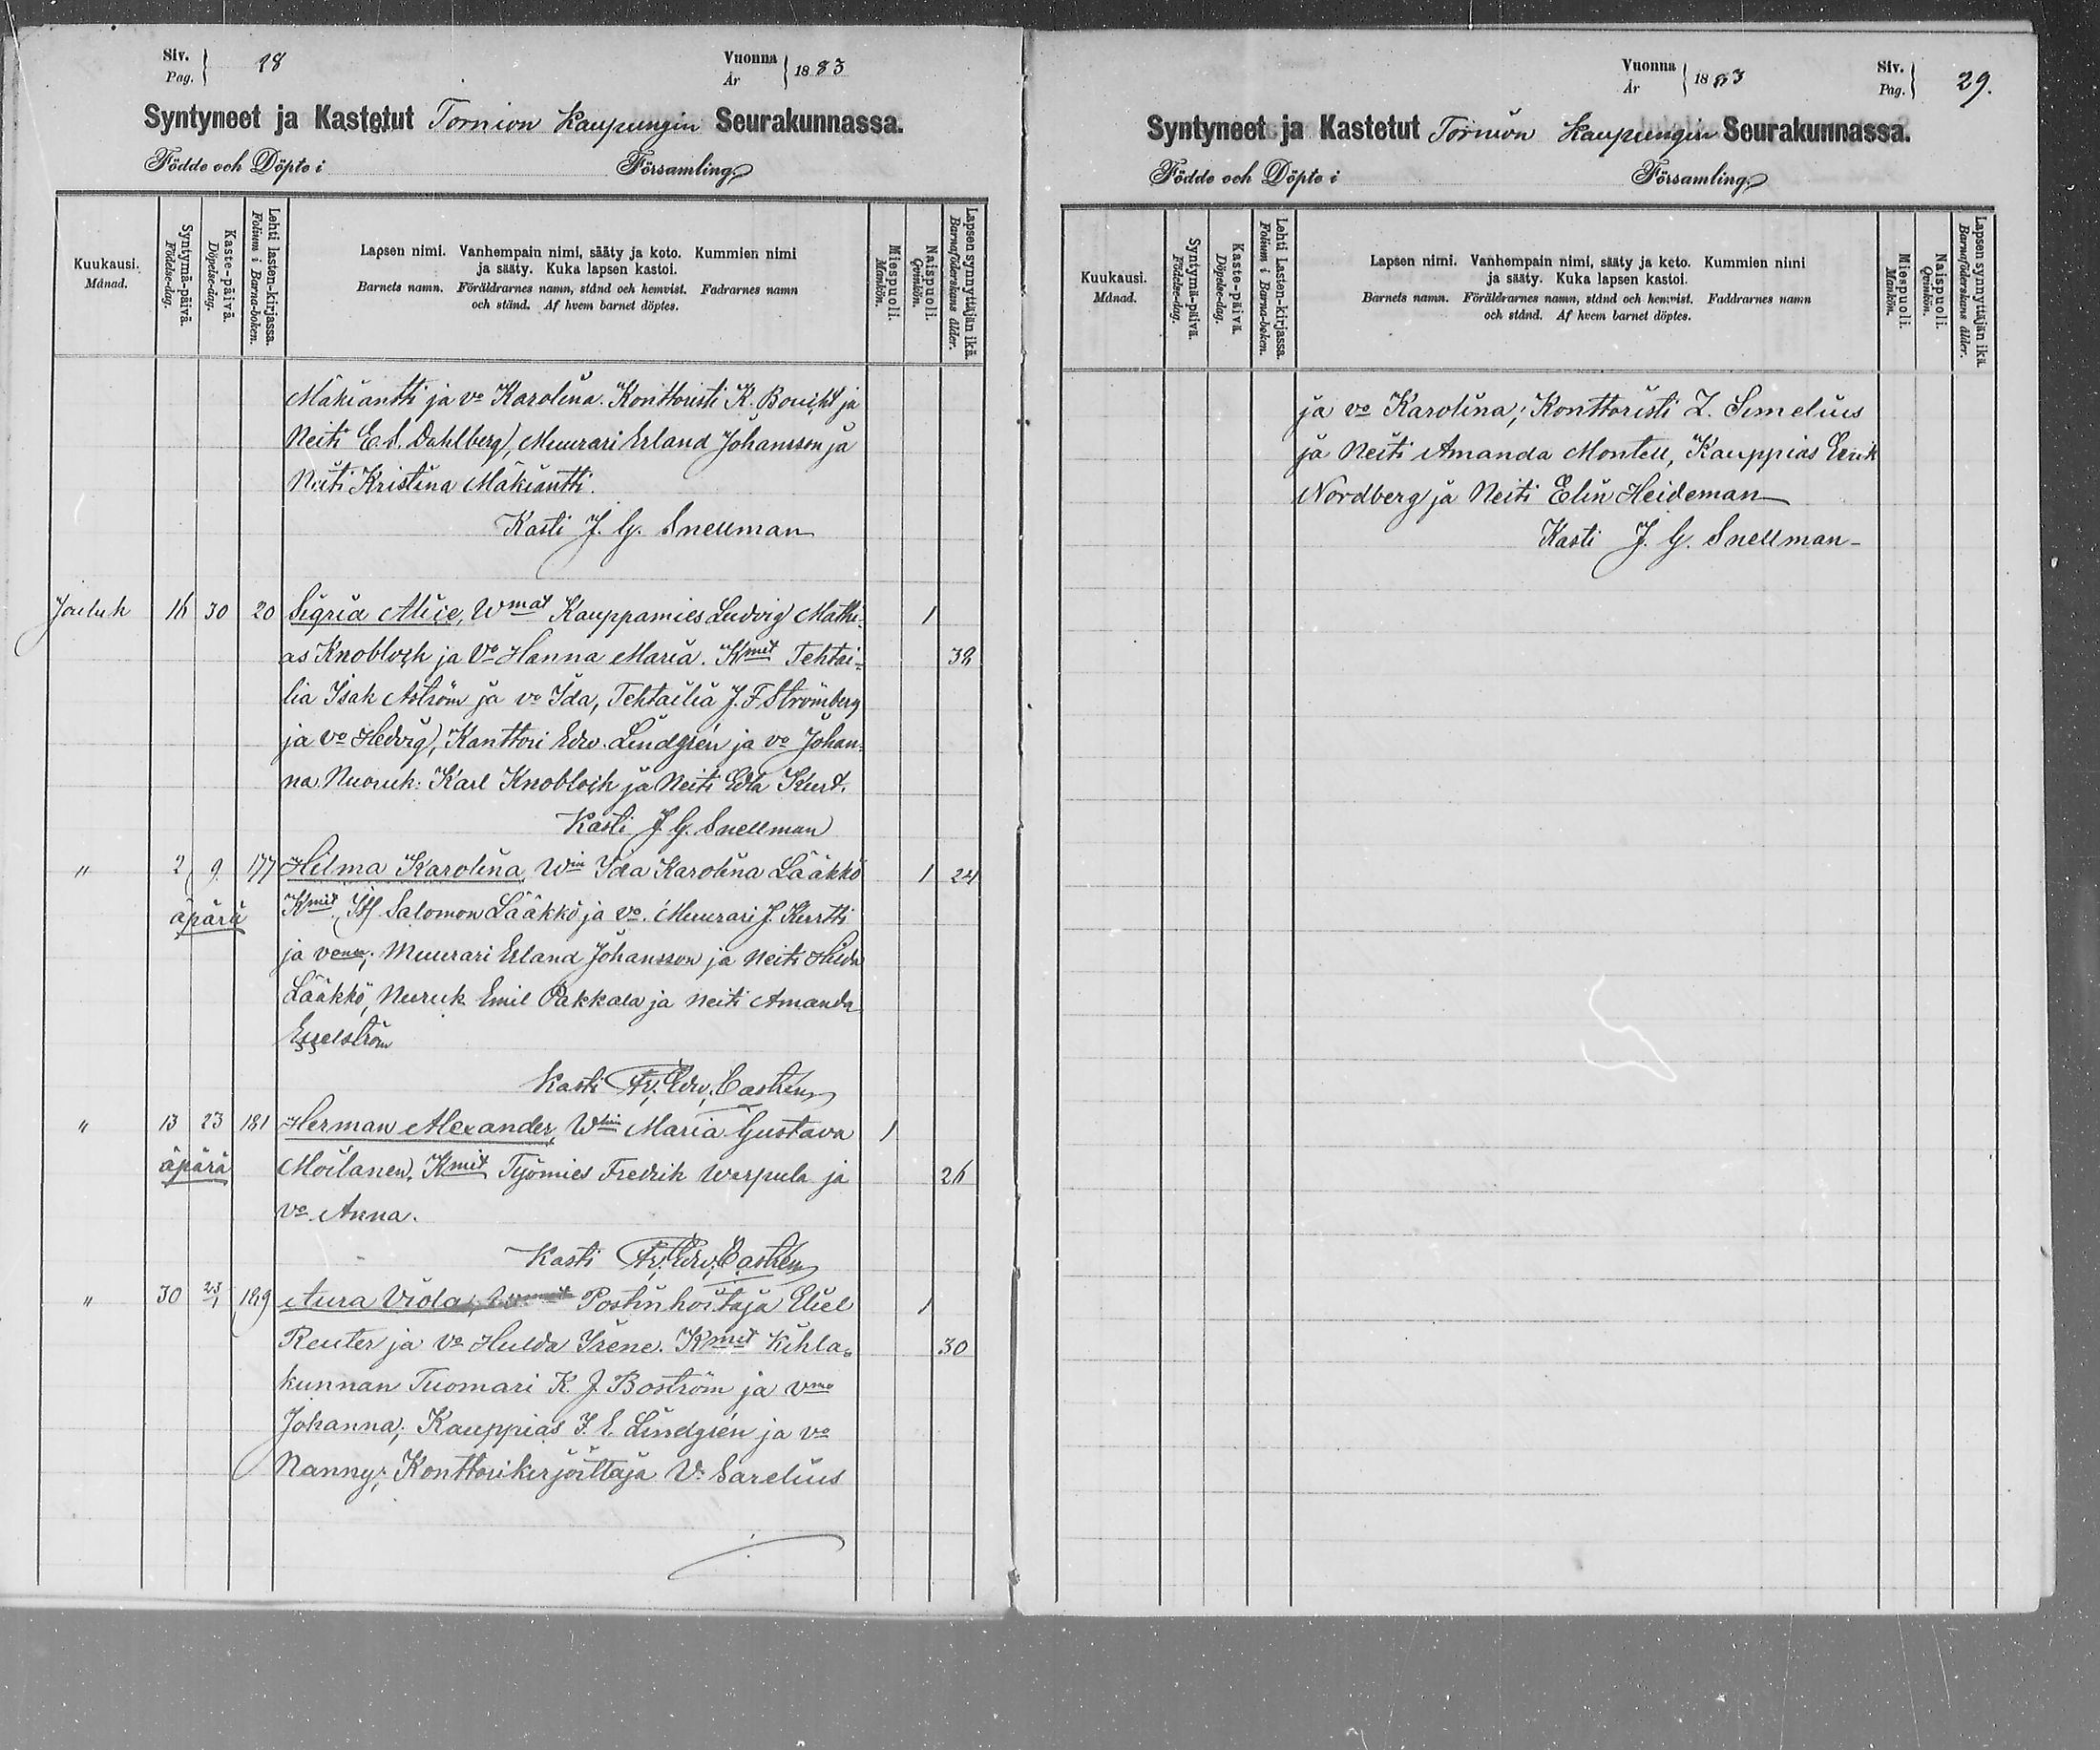 Siv.
Pag.
28
Vuonna
År
1883
Syntyneet ja Kastetut Tornion Kaupungin Seurakunnassa.
Födde och Döpte i Församling
Kuukausi.
Månad.
Syntymä-päivä.
Födelse-dag.
Kaste-päivä.
Döpelse-dag.
Lehti lasten-kirjassa.
Folium i Barna-boken.
Lapsen nimi. Vanhempain nimi, sääty ja koto. Kummien nimi
ja sääty. Kuka lapsen kastoi.
Barnets namn. Föräldrarnes namn, stånd och hemvist. Fadrarnes namn
och stånd. Af hvem barnet döptes.
Miespuoli.
Mankön.
Naispuoli.
Qvinkön.
Lapsen synnyttäjän ikä.
Barnaföderskans ålder.
Mäkiantti ja vo Karolina. Konttoristi K. Boucht ja
Neiti E. S. Dahlberg, Muurari Erland Johansson ja
Neiti Kristina Mäkiantti.
Kasti J. G. Snellman
Jouluk 16 30 20 Sigrid Alice, Wmat Kauppamies Ludvig Mathi- 1
as Knobloch ja Vo Hanna Maria. Kmit Tehtai- 38
lia Isak Aström ja vo Ida, Tehtailia J. F. Strömberg
ja vo Hedvig, Kanttori Edw. Lindgrén ja vo Johan-
na Nuoruk: Karl Knobloch ja Neiti Edla Kurt.
Kasti J. G. Snellman
" 2 9 177 Hilma Karolina Win Ida Karolina Lääkkö 1 24
äpärä Kmit Salomon Lääkkö ja vo. Muurari J. Kurtti
ja vonsa; Muurari Erland Johansson ja neiti Hilda
Lääkkö, Nuruk Emil Pakkala ja neiti Amanda
Engelström
Kasti Fr. Edv. Castrén
" 13 23 181 Herman Alexander, Win Maria Gustava 1
äpärä Moilanen. Kmit Työmies Fredrik Warpula ja 26
vo Anna.
Kasti Fr. Edv. Castrén
" 30 189 Aura Viola, Postinhoitaja Eliel 1
Reuter ja Vo Hulda Irene. Kmit Kihla- 30
kunnan Tuomari K. J. Boström ja vmo
Johanna; Kauppias J. E. Lindgrén ja vo
Nanny; Konttorikirjoittaja V. Sarelius
Vuonna
År
1883
Siv.
Pag.
29.
Syntyneet ja Kastetut Tornion Kaupungin Seurakunnassa.
Födde och Döpte i Församling
Kuukausi.
Månad.
Syntymä-päivä.
Födelse-dag.
Kaste-päivä.
Döpelse-dag.
Lehti Lasten-kirjassa.
Folium i Barna-boken.
Lapsen nimi. Vanhempain nimi, sääty ja koto. Kummien nimi
ja sääty. Kuka lapsen kastoi.
Barnets namn. Föräldrarnes namn, stånd och hemvist. Faddrarnes namn
och stånd. Af hvem barnet döptes.
Miespuoli.
Mankön.
Naispuoli.
Qvinkön.
Lapsen synnyttäjän ikä.
Barnaföderskans ålder.
ja vo Karolina; Konttoristi Z. Simelius
ja Neiti Amanda Montell, Kauppias Erik
Nordberg ja Neiti Elin Heideman
Kasti J. G. Snellman